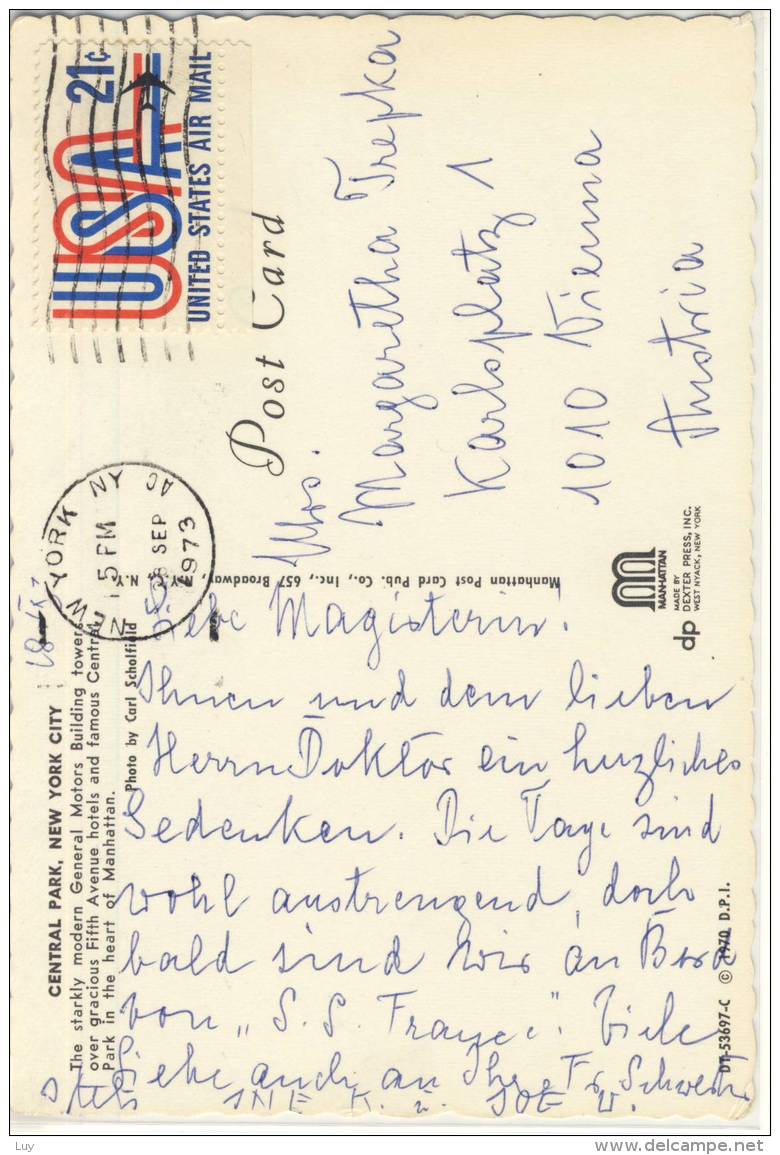 CENTRAL PARK, NEW YORK CITY
The starkly modern General Motors Building towers
over gracious Fifth Avenue hotels and famous Central
Park in the heart of Manhattan.
Photo by Carl Scholfield
Liebe Magisterin.
Ihnen und dem lieben
Herrn Doktor ein herzliches
Gedenken. Die Tage sind
wohl anstrengend, doch
bald sind wir an Bord
von „S.S. France". Viele
Liebe auch an Ihre Fr. Schwester
Manhattan Post Card Pub. Co., Inc., 657 Broadway, N.Y.C., N.Y.
NEW YORK NY AC
5 PM
SEP
1973
21c
USA
UNITED STATES AIR MAIL
Post Card
Mrs.
Margaretha Trepka
Karlsplatz 1
1010 Vienna
Austria
MANHATTAN
MADE BY
dp DEXTER PRESS, INC.
WEST NYACK, NEW YORK
DT-53697-C © 1970 D.P.I.
Luy
www.delcampe.net